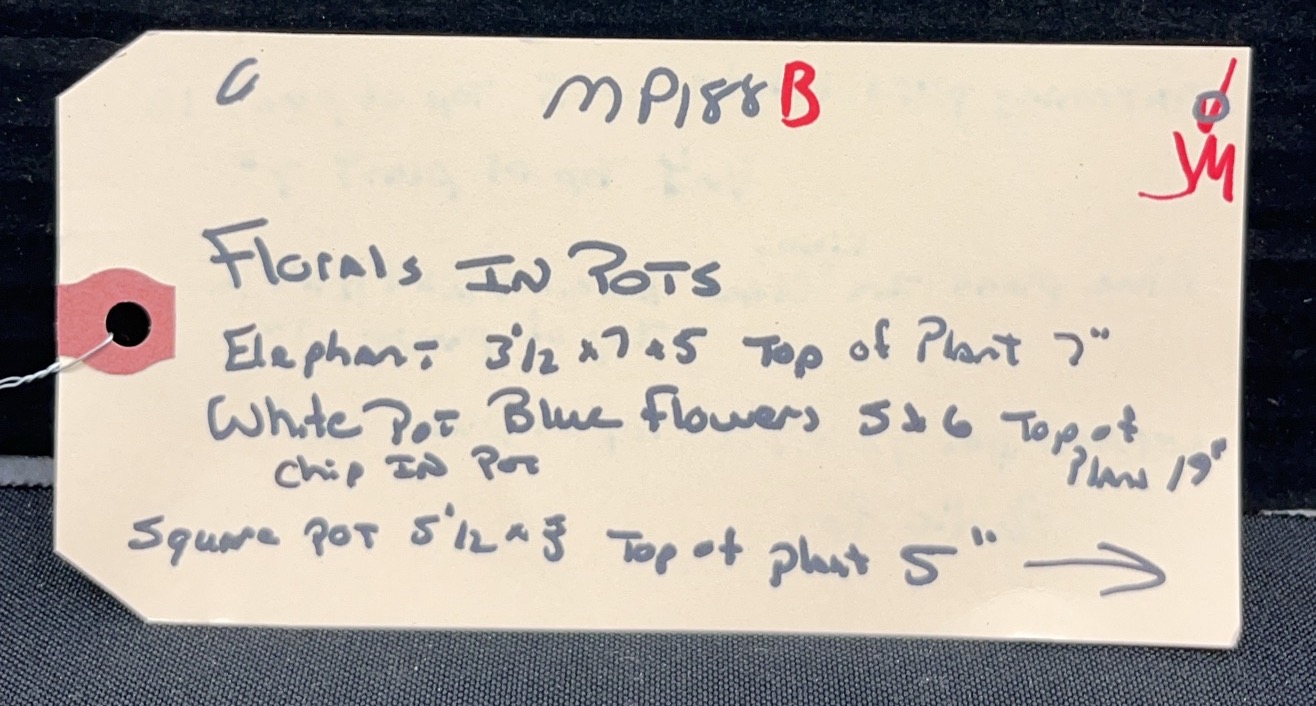 MP188B
JM
Florals IN POTS
Elephant 3 1/2 x 7 x 5 Top of Plant 7"
White Pot Blue flowers 5 x 6 Top of Plan 19"
chip IN Pot
Square POT 5 1/2 x 3 Top of plant 5" →